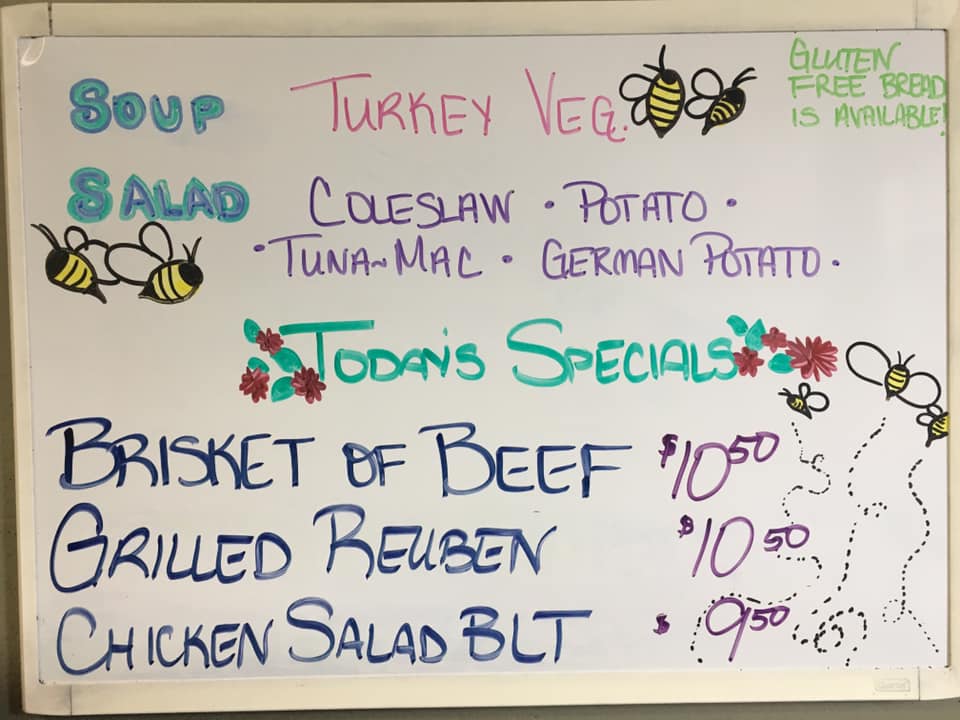 SOUP TURKEY VEG.
GLUTEN
FREE BREAD
IS AVAILABLE!
SALAD COLESLAW • POTATO •
• TUNA~MAC • GERMAN POTATO •
TODAY'S SPECIALS
BRISKET OF BEEF $10.50
GRILLED REUBEN $10.50
CHICKEN SALAD BLT $9.50